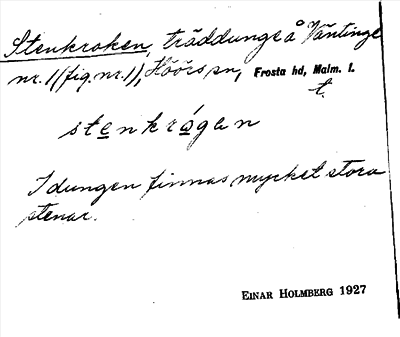 Stenkroken, träddunge å Väntinge
nr. 1 (fig. nr. 1), Höörs sn, Frosta hd, Malm. l.
t.
stenkrógen
I dungen finnas mycket stora
stenar.
EINAR HOLMBERG 1927